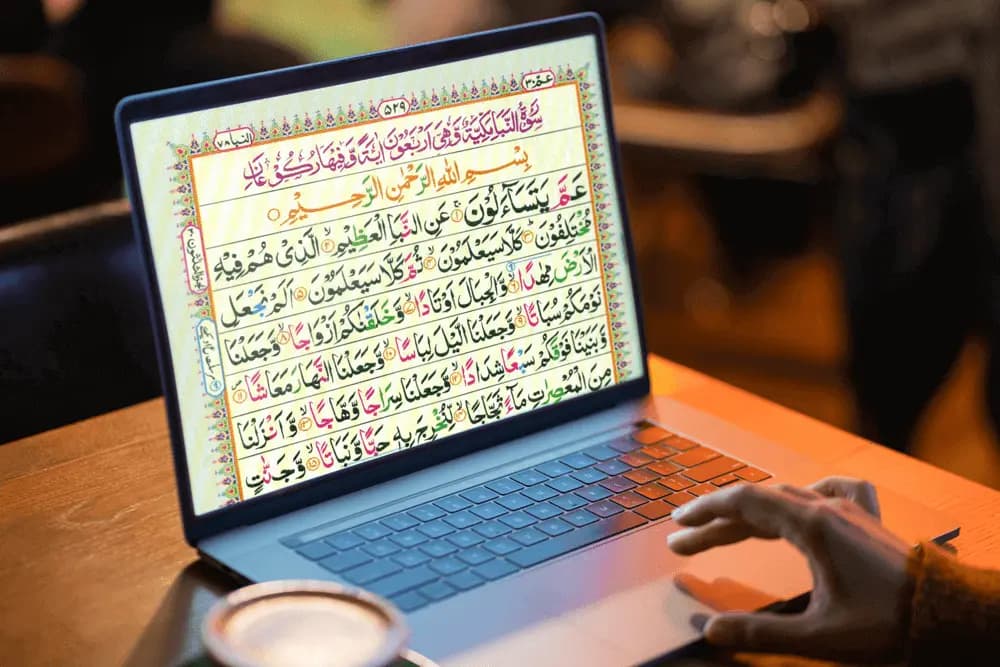 عمّ ٣٠
٥٢٩
النبا ٧٨
سُوْرَةُ النَّبَاِ مَكِّيَّةٌ وَّهِيَ اَرْبَعُوْنَ اٰيَةً وَّفِيْهَا رُكُوْعَانِ
بِسْمِ اللّٰهِ الرَّحْمٰنِ الرَّحِيْمِ
عَمَّ يَتَسَآءَلُوْنَ ١ عَنِ النَّبَاِ الْعَظِيْمِ ٢ الَّذِيْ هُمْ فِيْهِ
مُخْتَلِفُوْنَ ٣ كَلَّا سَيَعْلَمُوْنَ ٤ ثُمَّ كَلَّا سَيَعْلَمُوْنَ ٥ اَلَمْ نَجْعَلِ
الْاَرْضَ مِهٰدًا ٦ وَّالْجِبَالَ اَوْتَادًا ٧ وَّخَلَقْنٰكُمْ اَزْوَاجًا ٨ وَّجَعَلْنَا
نَوْمَكُمْ سُبَاتًا ٩ وَّجَعَلْنَا الَّيْلَ لِبَاسًا ١٠ وَّجَعَلْنَا النَّهَارَ مَعَاشًا ١١
وَّبَنَيْنَا فَوْقَكُمْ سَبْعًا شِدَادًا ١٢ وَّجَعَلْنَا سِرَاجًا وَّهَّاجًا ١٣ وَّاَنْزَلْنَا
مِنَ الْمُعْصِرٰتِ مَآءً ثَجَّاجًا ١٤ لِّنُخْرِجَ بِهٖ حَبًّا وَّنَبَاتًا ١٥ وَّجَنّٰتٍ